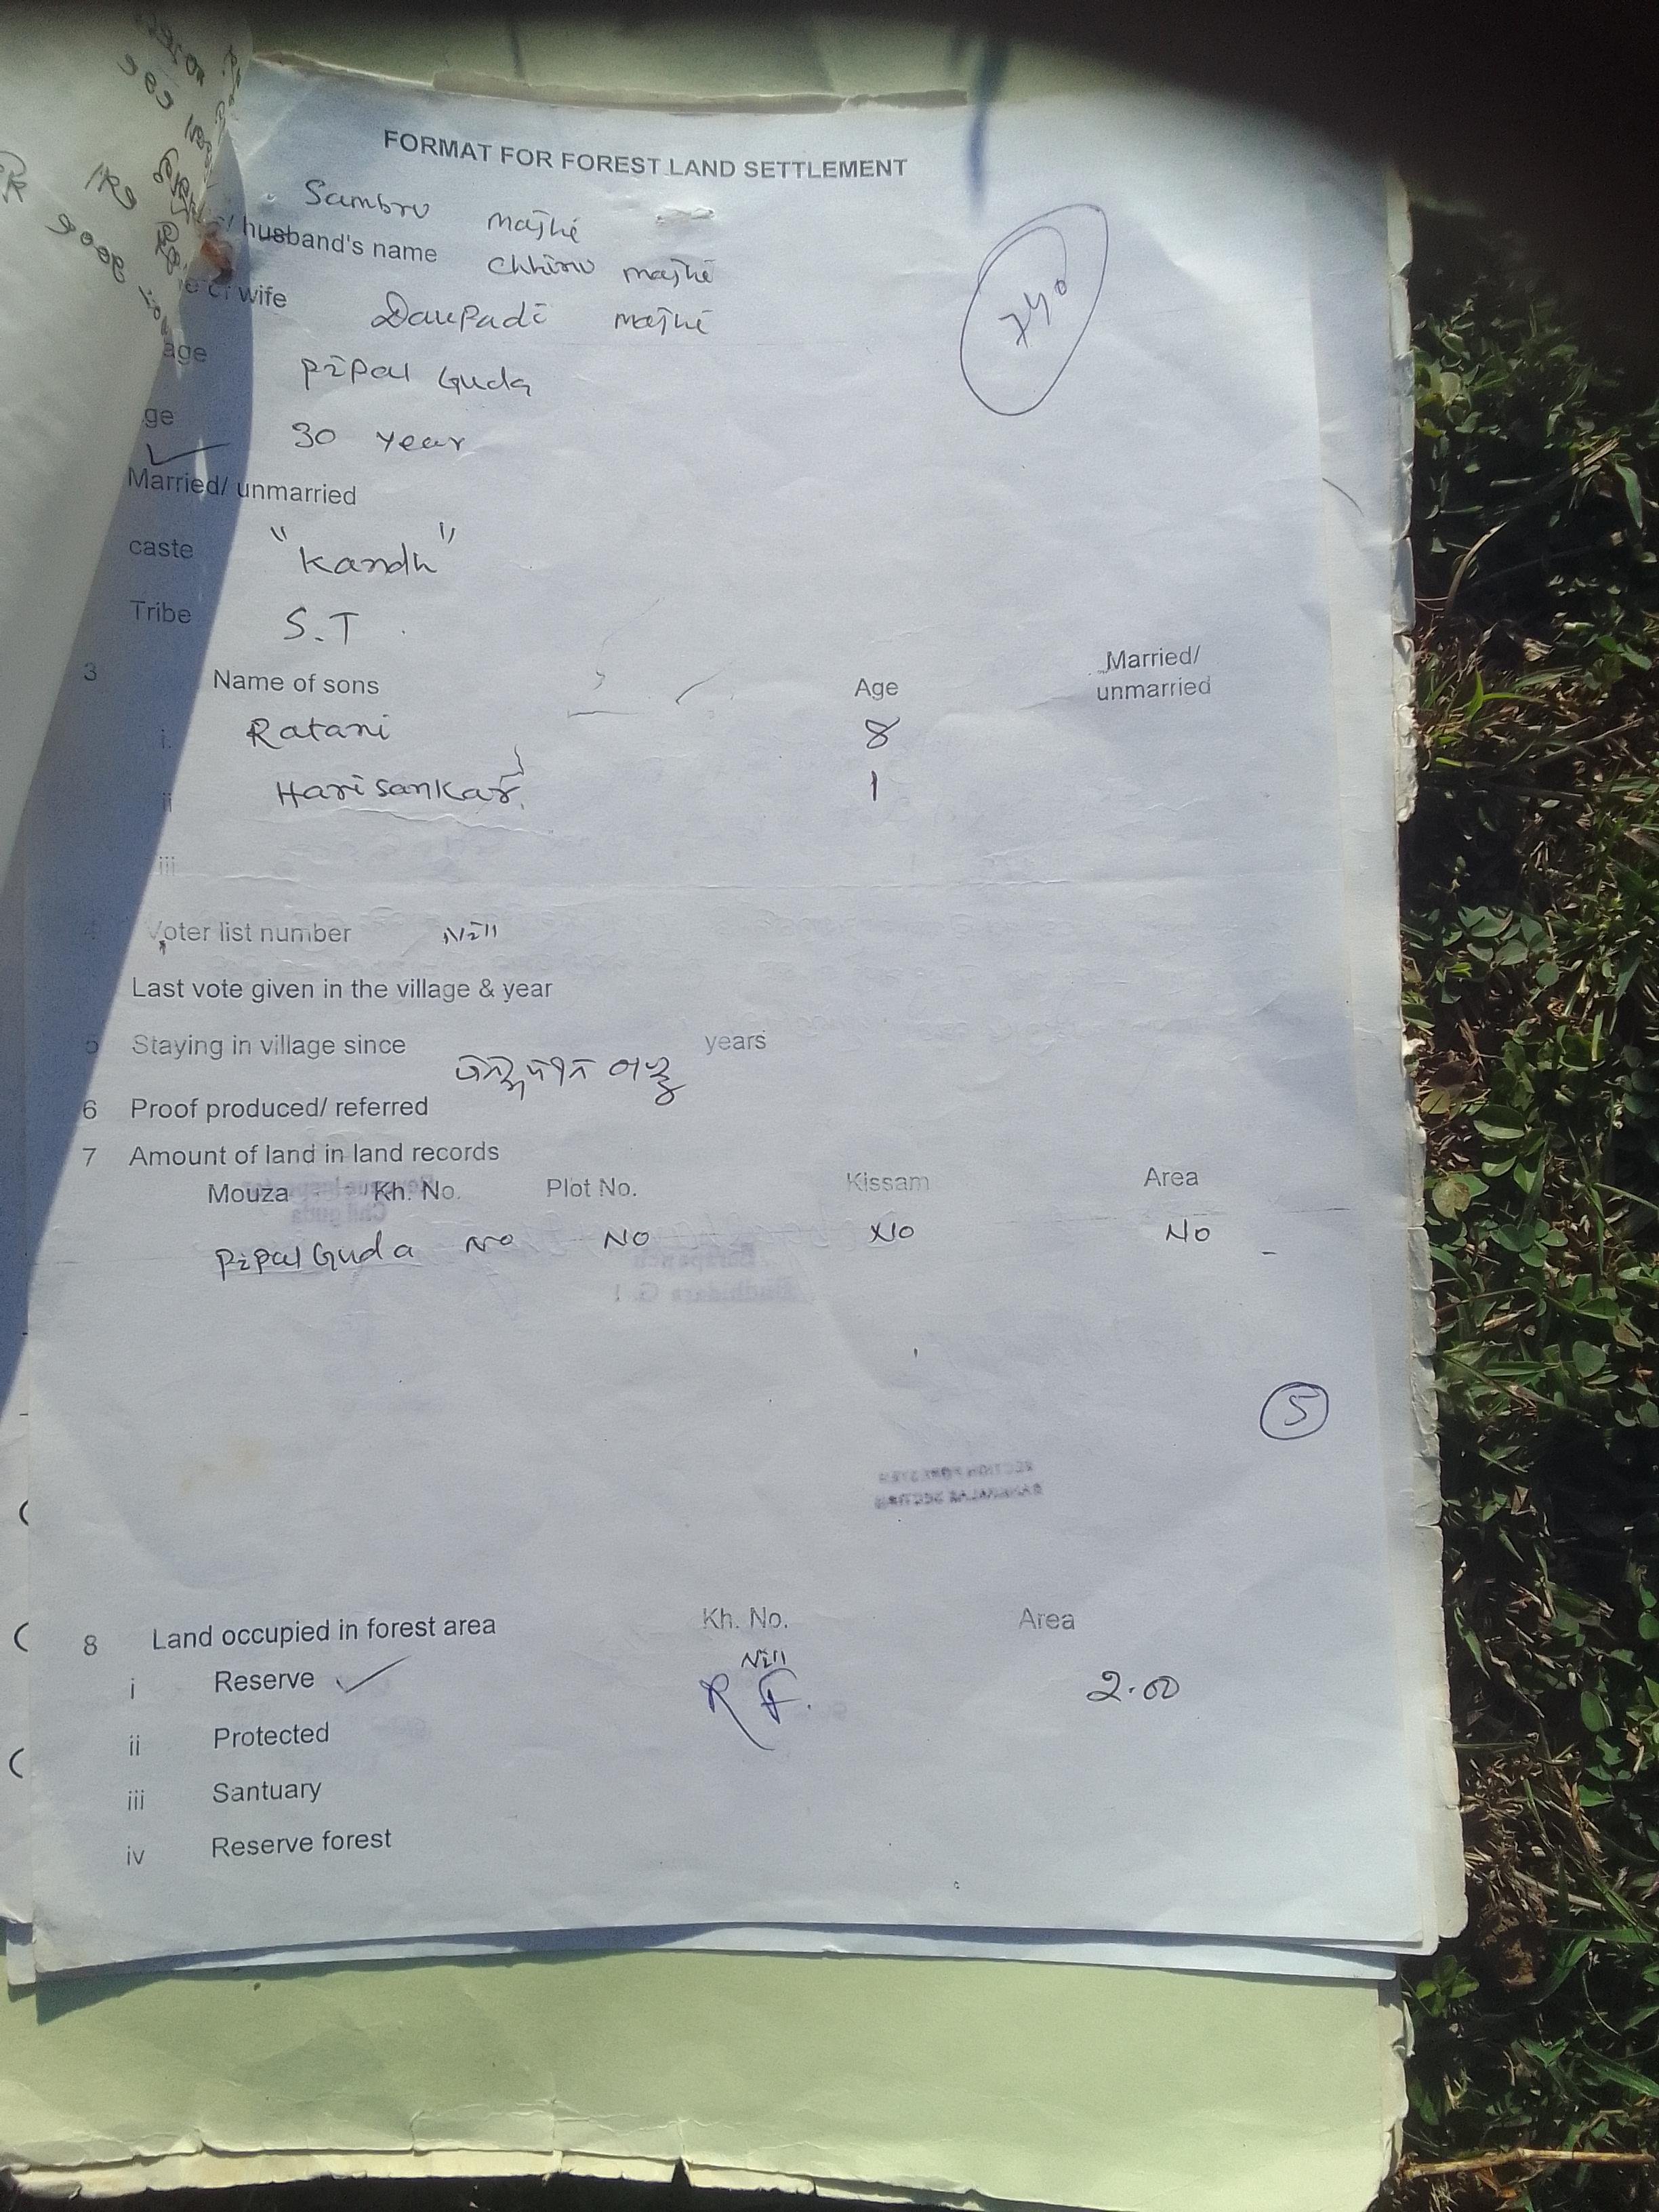 FORMAT FOR FOREST LAND SETTLEMENT
Sambru majhi
husband's name Chhinu majhi
wife Daupadi majhi
age Pipal Guda
ge 30 year
Married/ unmarried
caste "Kandh"
Tribe S.T
3 Name of sons Age Married/ unmarried
i. Ratani 8
ii Harisankar 1
iii
4 Voter list number Nill
Last vote given in the village & year
5 Staying in village since years
6 Proof produced/ referred
7 Amount of land in land records
Mouza Kh. No. Plot No. Kissam Area
Pipal Guda No No No No
5
8 Land occupied in forest area Kh. No. Area
Nill
i Reserve R F. 2.00
ii Protected
iii Santuary
iv Reserve forest